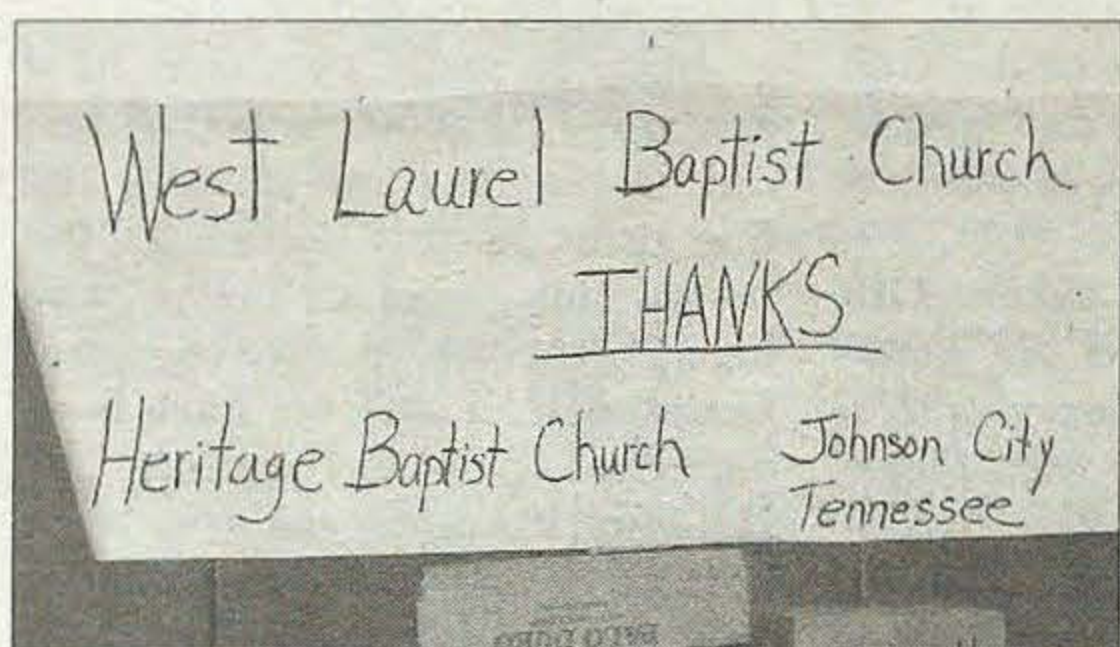 West Laurel Baptist Church
THANKS
Heritage Baptist Church Johnson City
Tennessee